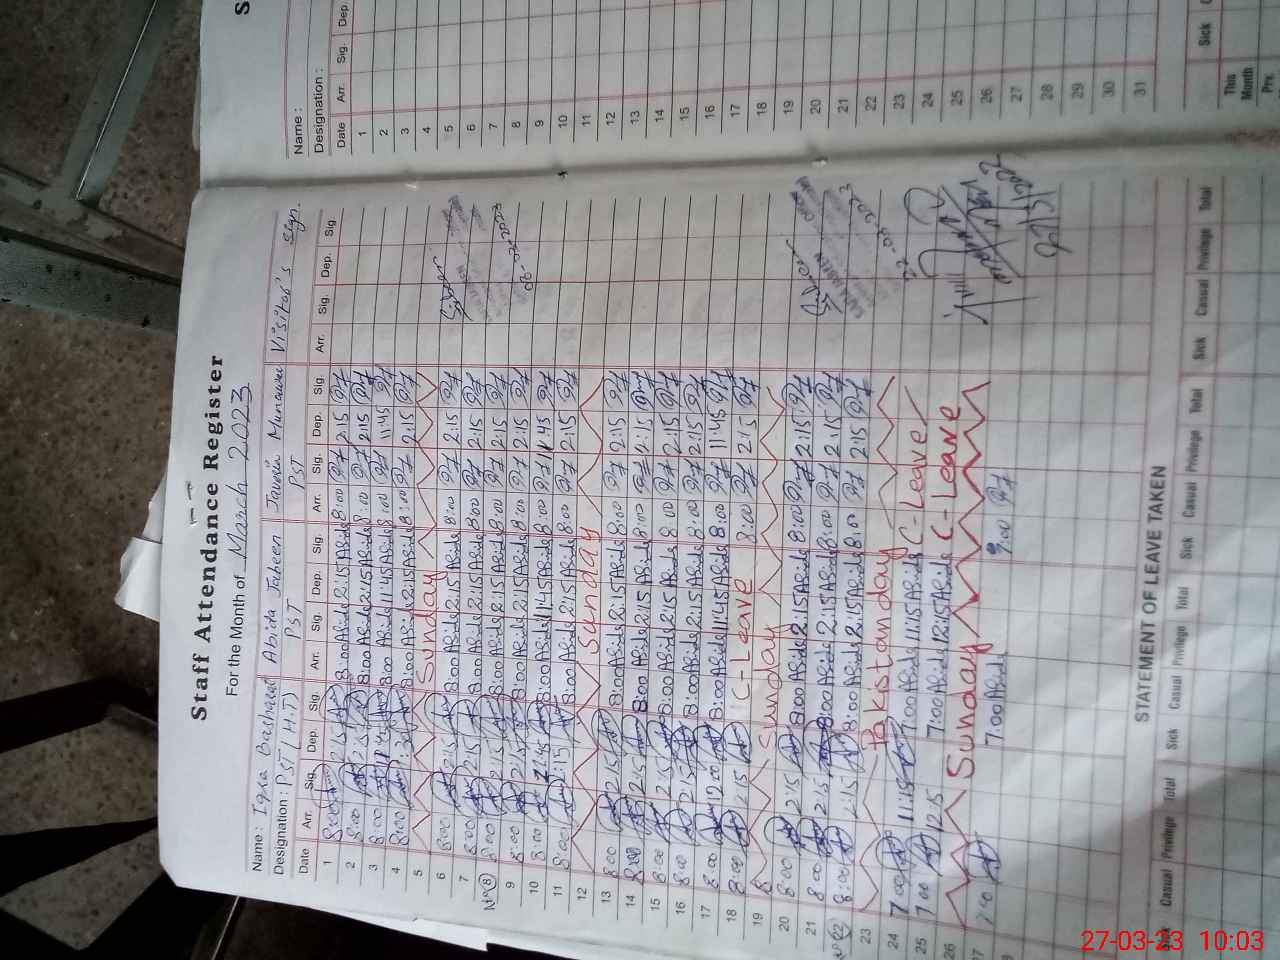 Staff Attendance Register
For the Month of March 2023
Name: Iqra Abida Jabeen Javeria Visitor's Sign.
Designation: PST (H.T) PST PST
Date Arr. Sig. Dep. Sig. Arr. Sig. Dep. Sig. Arr. Sig. Dep. Sig. Arr. Sig. Dep. Sig.
1 8:00 2:15 8:00 Abida 2:15 Abida 8:00 2:15
2 8:00 2:15 8:00 Abida 2:15 Abida 8:00 2:15
3 8:00 8:00 Abida 11:45 Abida 8:00 11:45
4 8:00 8:00 Abida 2:15 Abida 8:00 2:15
5 Sunday
6 8:00 2:15 8:00 Abida 2:15 Abida 8:00 2:15
7 8:00 2:15 8:00 Abida 2:15 Abida 8:00 2:15
8 8:00 2:15 8:00 Abida 2:15 Abida 8:00 2:15
9 8:00 2:15 8:00 Abida 2:15 Abida 8:00 2:15
10 8:00 8:00 Abida 11:45 Abida 8:00 11:45
11 8:00 2:15 8:00 Abida 2:15 Abida 8:00 2:15
12 Sunday
13 8:00 2:15 8:00 Abida 2:15 Abida 8:00 2:15
14 8:00 2:15 8:00 Abida 2:15 Abida 8:00 2:15
15 8:00 2:15 8:00 Abida 2:15 Abida 8:00 2:15
16 8:00 2:15 8:00 Abida 2:15 Abida 8:00 2:15
17 8:00 12:00 8:00 Abida 11:45 Abida 8:00 11:45
18 8:00 2:15 C-Leave 8:00 2:15
19 Sunday
20 8:00 2:15 8:00 Abida 2:15 Abida 8:00 2:15
21 8:00 2:15 8:00 Abida 2:15 Abida 8:00 2:15
22 8:00 2:15 8:00 Abida 2:15 Abida 8:00 2:15
23 Pakistan day
24 7:00 11:15 7:00 Abida 11:15 Abida C-Leave
25 7:00 12:15 7:00 Abida 12:15 Abida C-Leave
26 Sunday
27 7:00 Abida
STATEMENT OF LEAVE TAKEN
Sick Casual Privilege Total Sick Casual Privilege Total Sick Casual Privilege Total Sick Casual Privilege Total
Name:
Designation:
Date Arr. Sig. Dep.
1
2
3
4
5
6
7
8
9
10
11
12
13
14
15
16
17
18
19
20
21
22
23
24
25
26
27
28
29
30
31
Sick
This Month
Prv.
27-03-23 10:03